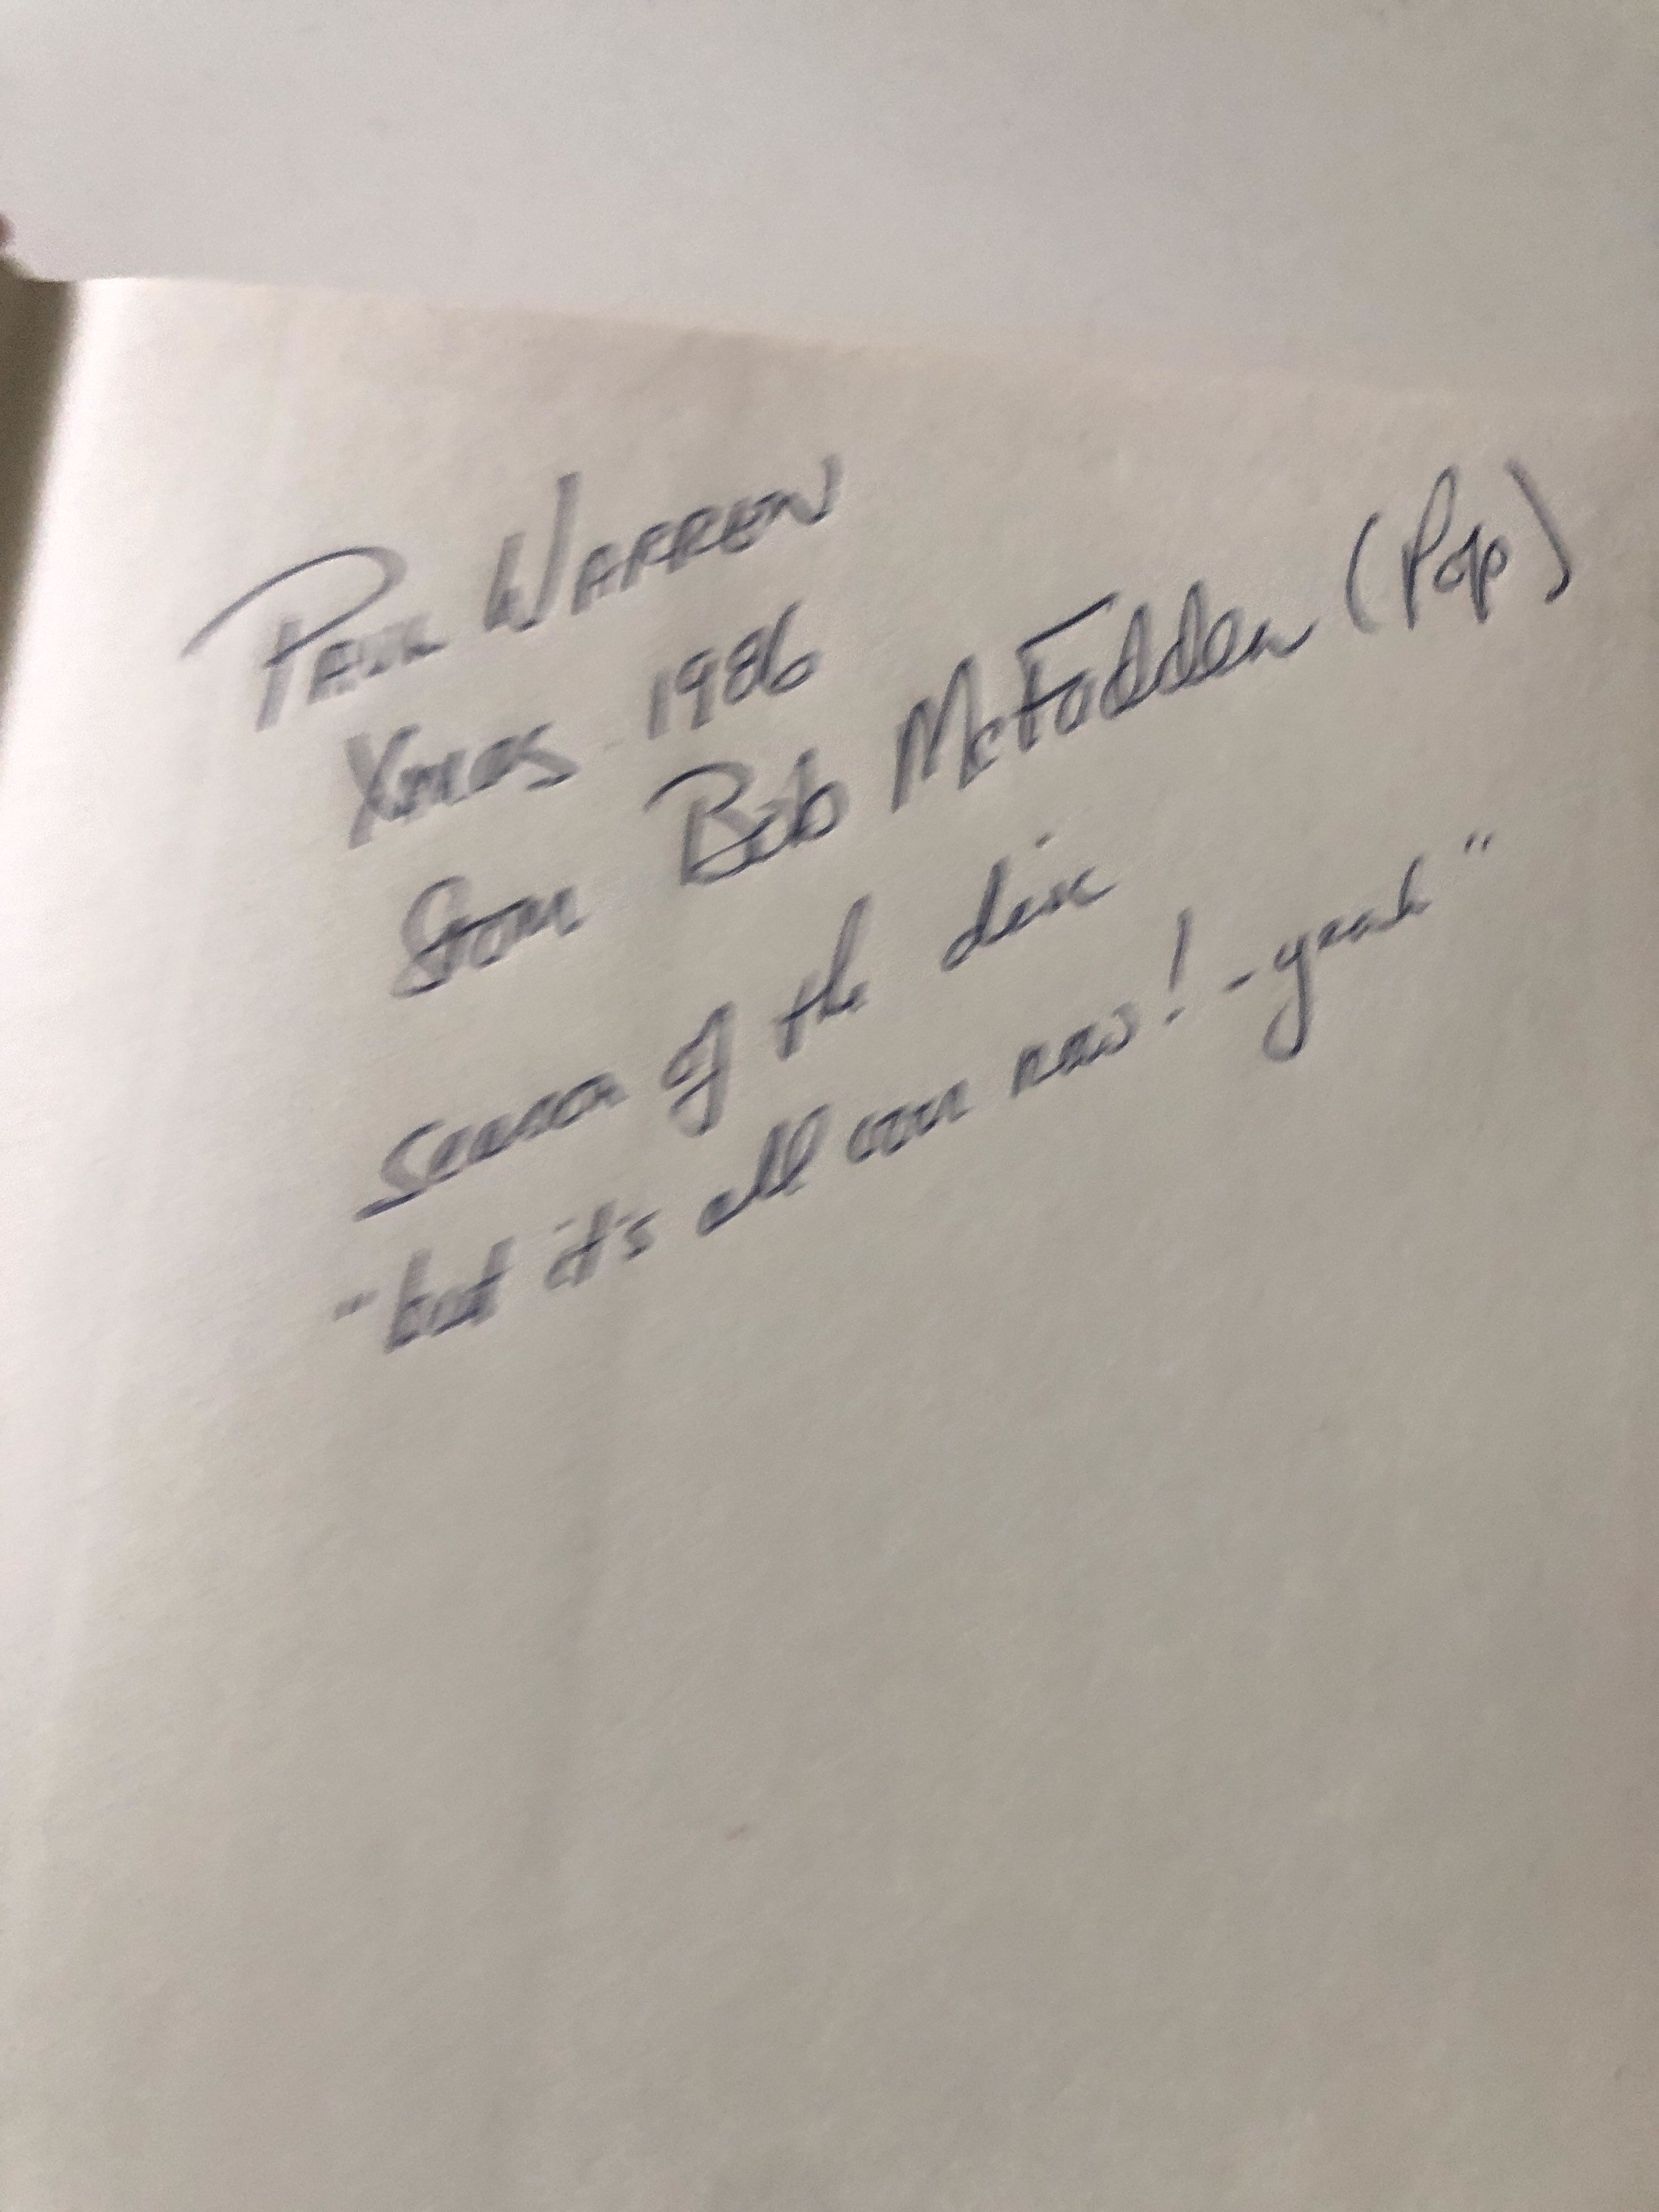 PAUL WARREN
Xmas 1986
from Bob McFadden (Pop)
season of the disc
"but it's all over now! - yeah"